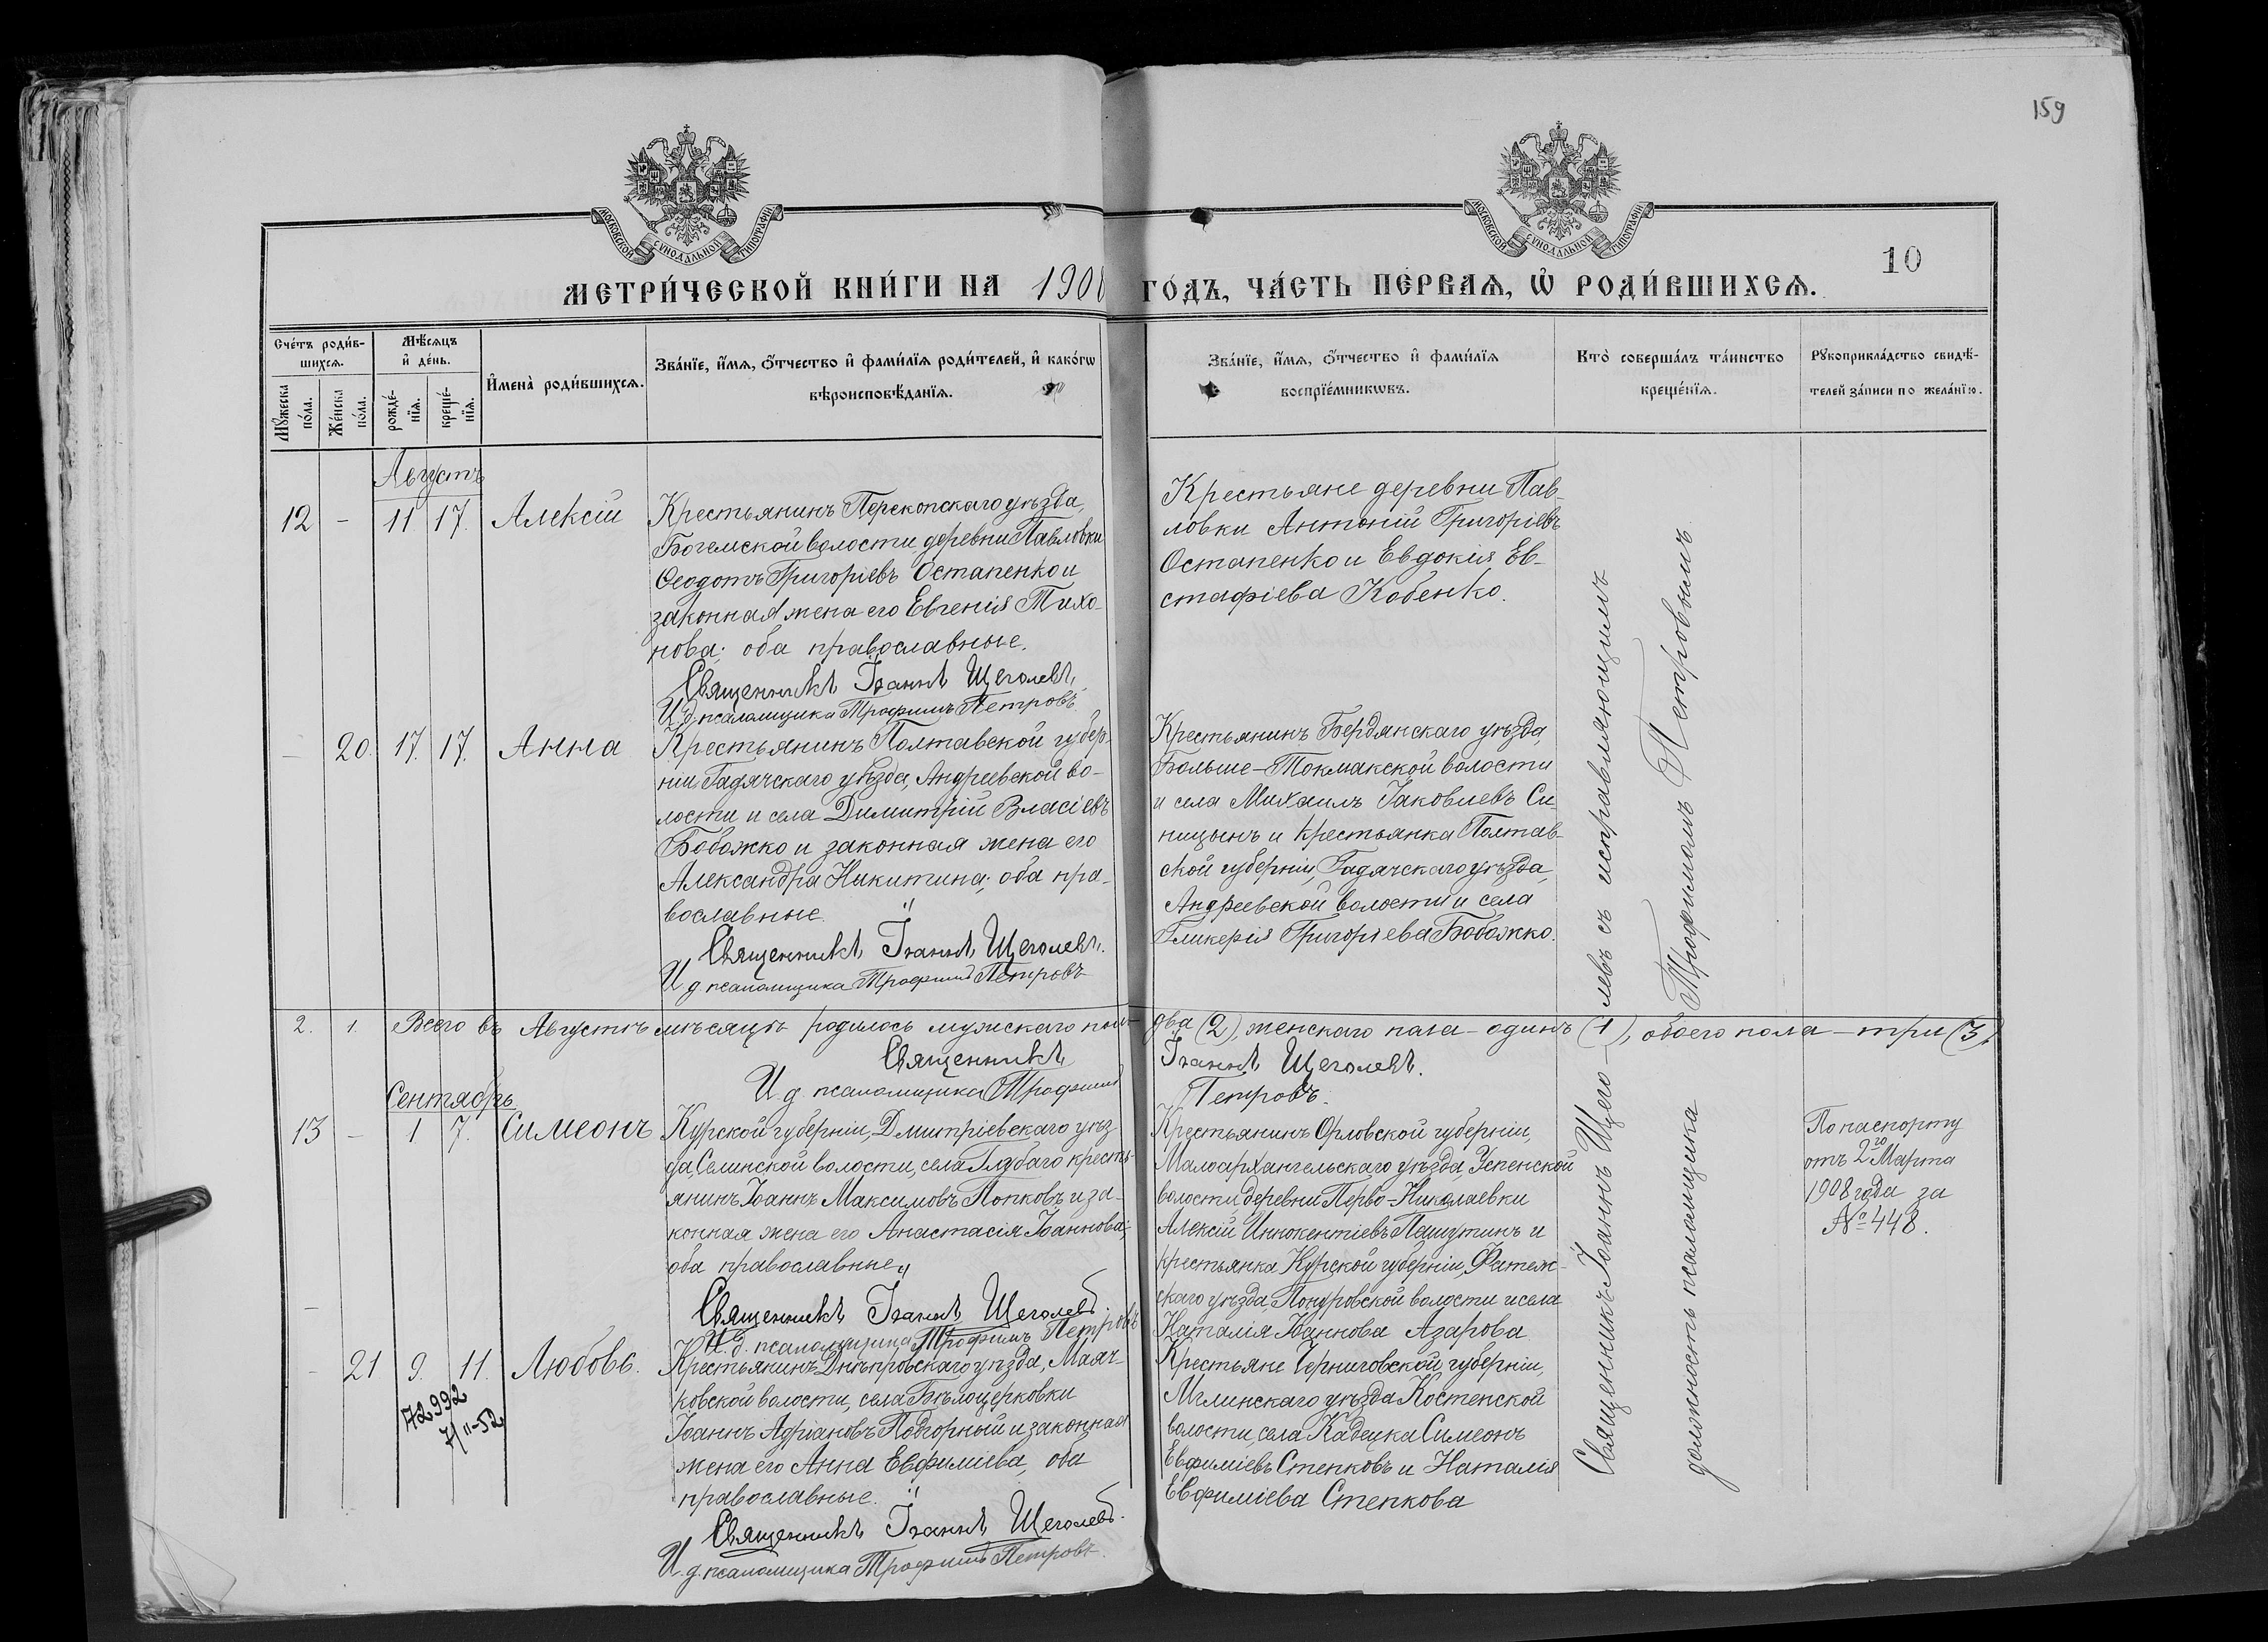 159
МОСКОВСКОЙ СѴНОДАЛЬНОЙ ТИПОГРАФІИ
МОСКОВСКОЙ СѴНОДАЛЬНОЙ ТИПОГРАФІИ
10
МЕТРИ́ЧЕСКОЙ КНИ́ГИ НА 1908 ГО́ДЪ, ЧА́СТЬ ПЕ́РВАѦ, Ѡ҆ РОДИ́ВШИХСѦ.
Сче́тъ роди́в-
шихсѧ.
Мꙋ́жеска
по́ла.
Же́нска
по́ла.
Мѣ́сѧцъ
и҆ де́нь.
рожде́-
нїѧ.
креще́-
нїѧ.
И҆мена̀ роди́вшихсѧ.
Зва́нїе, и҆́мѧ, ѻ҆́тчество и҆ фами́лїѧ роди́телей, и҆ како́гѡ
вѣроисповѣ́данїѧ.
Зва́нїе, и҆́мѧ, ѻ҆́тчество и҆ фами́лїѧ
воспрїе́мникѡвъ.
Кто̀ соверша́лъ та́инство
креще́нїѧ.
Рꙋкоприкла́дство свидѣ́-
телей за́писи по жела́нїю.
Августъ
12 - 11 17. Алексій
Крестьянинъ Перекопскаго уѣзда,
Богемской волости, деревни Павловки
Ѳеодотъ Григоріевъ Остапенко и
законная жена его Евгенія Тихо-
нова; оба православные.
Священникъ Іоаннъ Щеголевъ.
И. д. псаломщика Трофимъ Петровъ.
Крестьяне деревни Пав-
ловки Антоній Григоріевъ
Остапенко и Евдокія Ев-
стафіева Кобенко.
- 20. 17. 17. Анна
Крестьянинъ Полтавской губер-
ніи, Гадячскаго уѣзда, Андреевской во-
лости и села Димитрій Власіевъ
Бобожко и законная жена его
Александра Никитина; оба пра-
вославные.
Священникъ Іоаннъ Щеголевъ.
И д. псаломщика Трофимъ Петровъ
Крестьянинъ Бердянскаго уѣзда,
Больше-Токмакской волости
и села Михаилъ Іаковлевъ Си-
ницынъ и крестьянка Полтав-
ской губерніи, Гадячскаго уѣзда,
Андреевской волости и села
Гликерія Григоріева Бобожко.
2. 1. Всего въ Августѣ мѣсяцѣ родилось мужскаго пола два (2), женскаго пола - одинъ (1), обоего пола - три (3).
Священникъ Іоаннъ Щеголевъ.
И. д. псаломщика Трофимъ Петровъ.
Сентябрь.
13 - 1 7. Симеонъ
Курской губерніи, Дмитріевскаго уѣз-
да, Селинской волости, села Глубаго кресть-
янинъ Іоаннъ Максимовъ Попковъ и за-
конная жена его Анастасія Іоаннова;
оба православные
Священникъ Іоаннъ Щеголевъ.
И. д. псаломщика Трофимъ Петровъ
Крестьянинъ Орловской губерніи,
Малоархангельскаго уѣзда, Успенской
волости, деревни Перво-Николаевки
Алексій Иннокентіевъ Пашутинъ и
крестьянка Курской губерніи, Фатеж-
скаго уѣзда, волости и села
Наталія Іоаннова Азарова
По паспорту
отъ 2го Марта
1908 года за
№ 448.
- 21. 9. 11. Любовь.
72992
7/II-52
Крестьянинъ Днѣпровскаго уѣзда, Маяч-
ковской волости, села Бѣлоцерковки
Іоаннъ Адріановъ Подгорный и законная
жена его Анна Евфиміева, оба
православные.
Священникъ Іоаннъ Щеголевъ.
И. д. псаломщика Трофимъ Петровъ.
Крестьяне Черниговской губерніи,
Мглинскаго уѣзда Костенской
волости, села Симеонъ
Евфиміевъ Стенковъ и Наталія
Евфиміева Стенкова
Священникъ Іоаннъ Щего-левъ съ исправляющимъ
должность псаломщика Трофимомъ Петровымъ